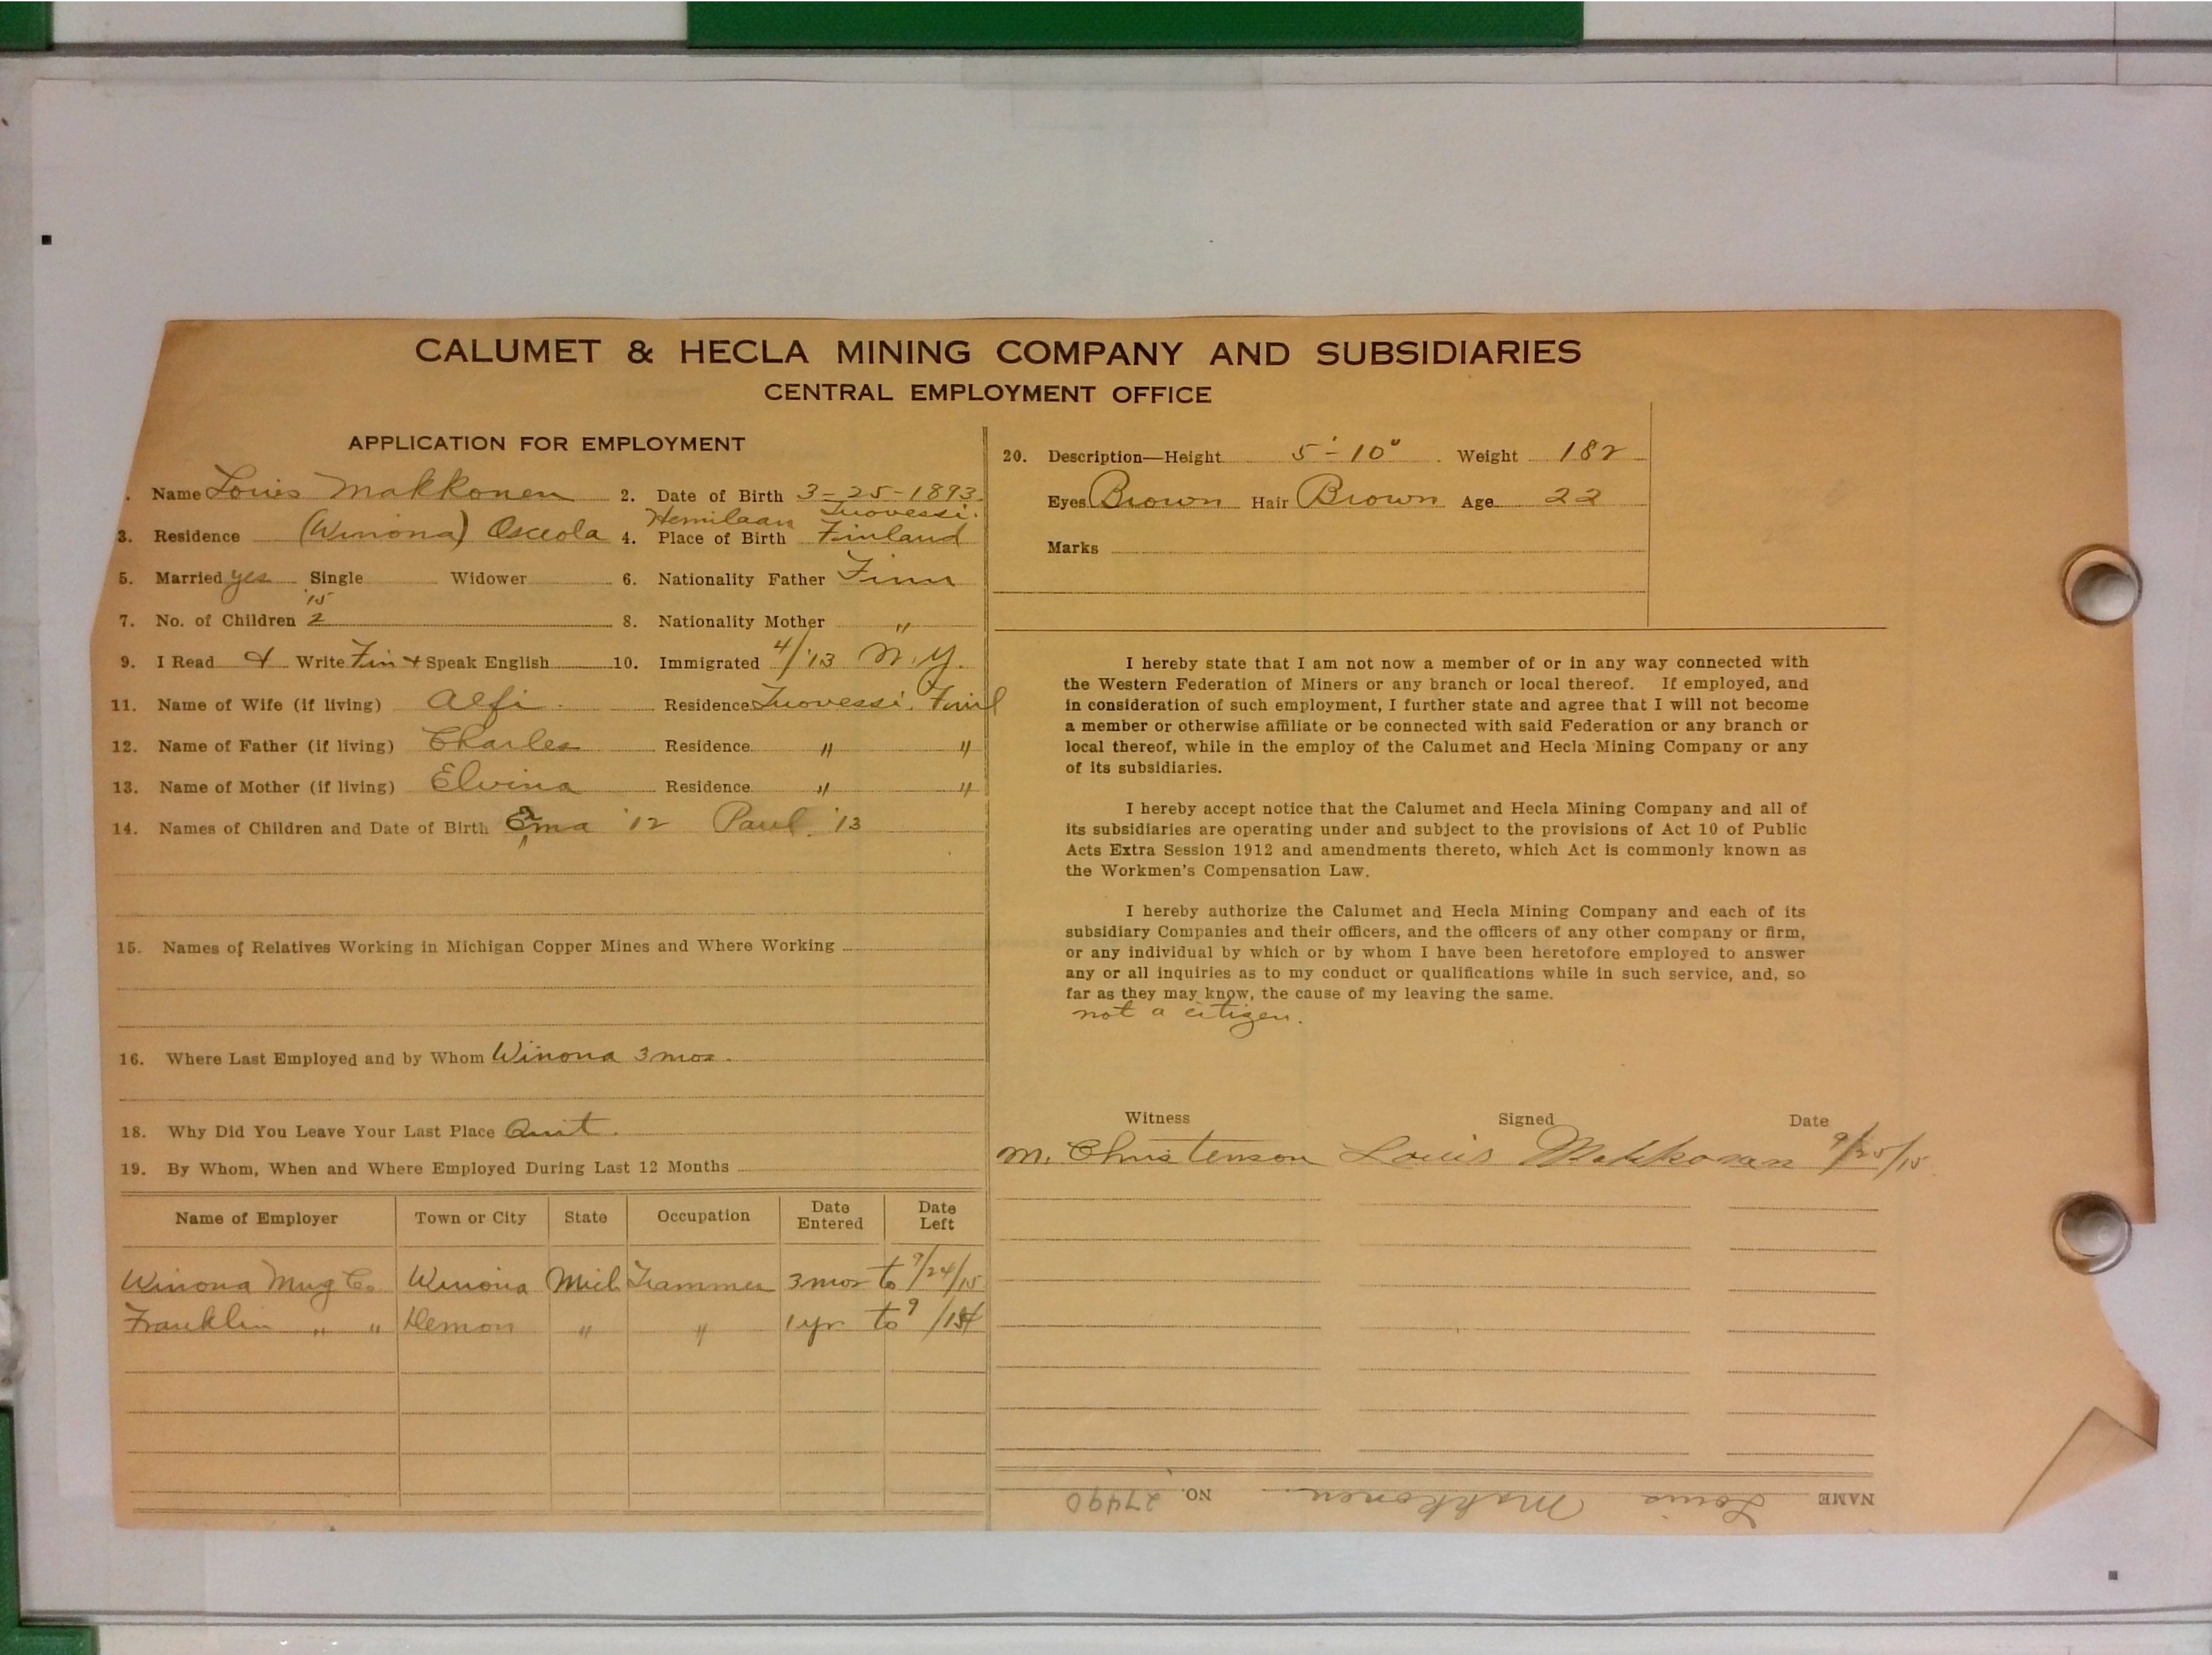 CALUMET & HECLA MINING COMPANY AND SUBSIDIARIES
CENTRAL EMPLOYMENT OFFICE
APPLICATION FOR EMPLOYMENT
. Name Louis Makkonen 2. Date of Birth 3-25-1893.
3. Residence (Winona) Osceola 4. Place of Birth Finland
5. Married yes Single Widower 6. Nationality Father Finn
'15
7. No. of Children 2 8. Nationality Mother "
9. I Read & Write Fin + Speak English 10. Immigrated 4/'13 N.Y.
11. Name of Wife (if living) Alfi Residence
12. Name of Father (if living) Charles Residence " "
13. Name of Mother (if living) Elvina Residence " "
14. Names of Children and Date of Birth '12 Paul '13
15. Names of Relatives Working in Michigan Copper Mines and Where Working
16. Where Last Employed and by Whom Winona 3 mos.
18. Why Did You Leave Your Last Place Quit.
19. By Whom, When and Where Employed During Last 12 Months
Name of Employer Town or City State Occupation Date Entered Date Left
Winona Mng Co. Winona Mich Trammer 3 mos to 9/24/15
Franklin " " Demon " " 1 yr to 9
20. Description—Height 5'-10" Weight 182
Eyes Brown Hair Brown Age 22
Marks
I hereby state that I am not now a member of or in any way connected with
the Western Federation of Miners or any branch or local thereof. If employed, and
in consideration of such employment, I further state and agree that I will not become
a member or otherwise affiliate or be connected with said Federation or any branch or
local thereof, while in the employ of the Calumet and Hecla Mining Company or any
of its subsidiaries.
I hereby accept notice that the Calumet and Hecla Mining Company and all of
its subsidiaries are operating under and subject to the provisions of Act 10 of Public
Acts Extra Session 1912 and amendments thereto, which Act is commonly known as
the Workmen's Compensation Law.
I hereby authorize the Calumet and Hecla Mining Company and each of its
subsidiary Companies and their officers, and the officers of any other company or firm,
or any individual by which or by whom I have been heretofore employed to answer
any or all inquiries as to my conduct or qualifications while in such service, and, so
far as they may know, the cause of my leaving the same.
not a citizen.
Witness Signed Date
M. Christenson Louis Makkonen 9/25/15
NAME Louis Makkonen. NO. 27490